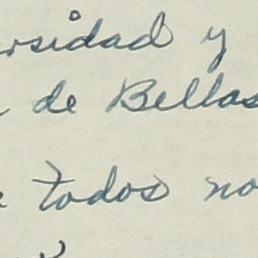 rsidad y
de Bellas
todos no